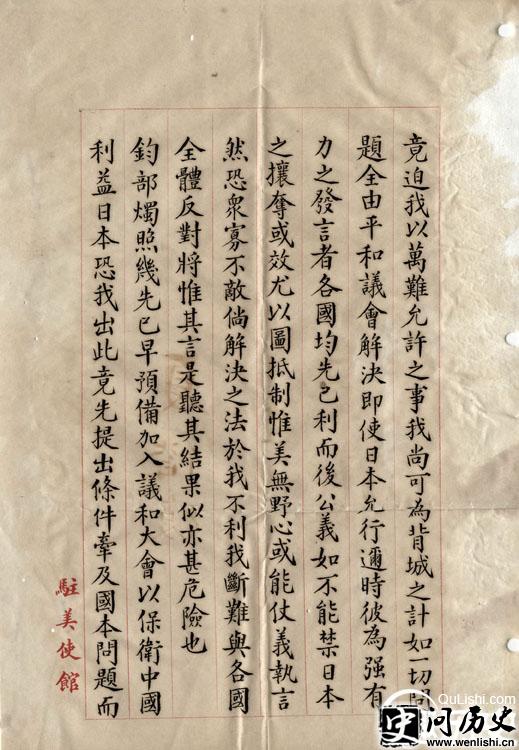 竟迫我以萬難允許之事我尚可為背城之計如一切問
題全由平和議會解決即使日本允行邇時彼為强有
力之發言者各國均先己利而後公義如不能禁日本
之攘奪或效尤以圖抵制惟美無野心或能仗義執言
然恐衆寡不敵倘解決之法於我不利我斷難與各國
全體反對將惟其言是聽其結果似亦甚危險也
鈞部燭照幾先已早預備加入議和大會以保衛中國
利益日本恐我出此竟先提出條件牽及國本問題而
駐美使館
QuLishi.com
问历史
www.wenlishi.cn